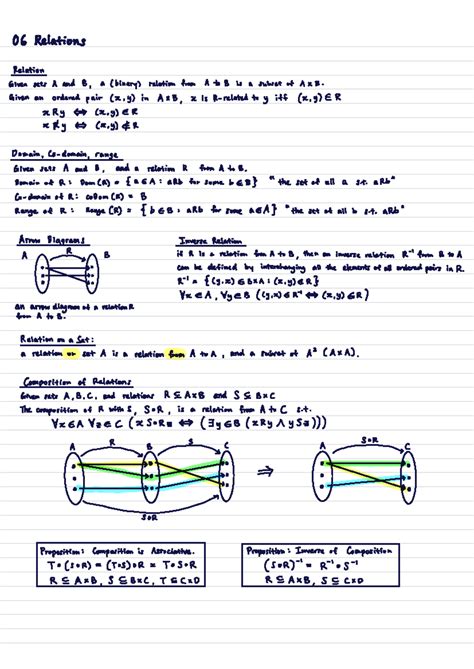 06 Relations
Relation
Given sets A and B, a (binary) relation from A to B is a subset of A×B.
Given an ordered pair (x,y) in A×B, x is R-related to y iff (x,y)∈R
xRy ⇔ (x,y)∈R
x R̸ y ⇔ (x,y)∉R
Domain, Co-domain, range
Given sets A and B, and a relation R from A to B.
Domain of R: Dom(R) = {a∈A : aRb for some b∈B} "the set of all a s.t. aRb"
Co-domain of R: coDom(R) = B
Range of R: Range(R) = {b∈B : aRb for some a∈A} "the set of all b s.t. aRb"
Arrow Diagrams
A R B
an arrow diagram of a relation R
from A to B.
Inverse Relation
if R is a relation from A to B, then an inverse relation R⁻¹ from B to A
can be defined by interchanging all the elements of all ordered pairs in R.
R⁻¹ = {(y,x)∈B×A : (x,y)∈R}
∀x∈A, ∀y∈B ((y,x)∈R⁻¹ ⇔ (x,y)∈R)
Relation on a Set:
a relation on set A is a relation from A to A, and a subset of A² (A×A).
Composition of Relations
Given sets A,B,C, and relations R⊆A×B and S⊆B×C
The composition of R with S, S∘R, is a relation from A to C s.t.
∀x∈A ∀z∈C (x S∘R z ⇔ (∃y∈B (xRy ∧ ySz)))
A R B S C
S∘R
⇒
A S∘R C
Proposition: Composition is Associative.
T∘(S∘R) = (T∘S)∘R = T∘S∘R
R⊆A×B, S⊆B×C, T⊆C×D
Proposition: Inverse of Composition
(S∘R)⁻¹ = R⁻¹∘S⁻¹
R⊆A×B, S⊆C×D